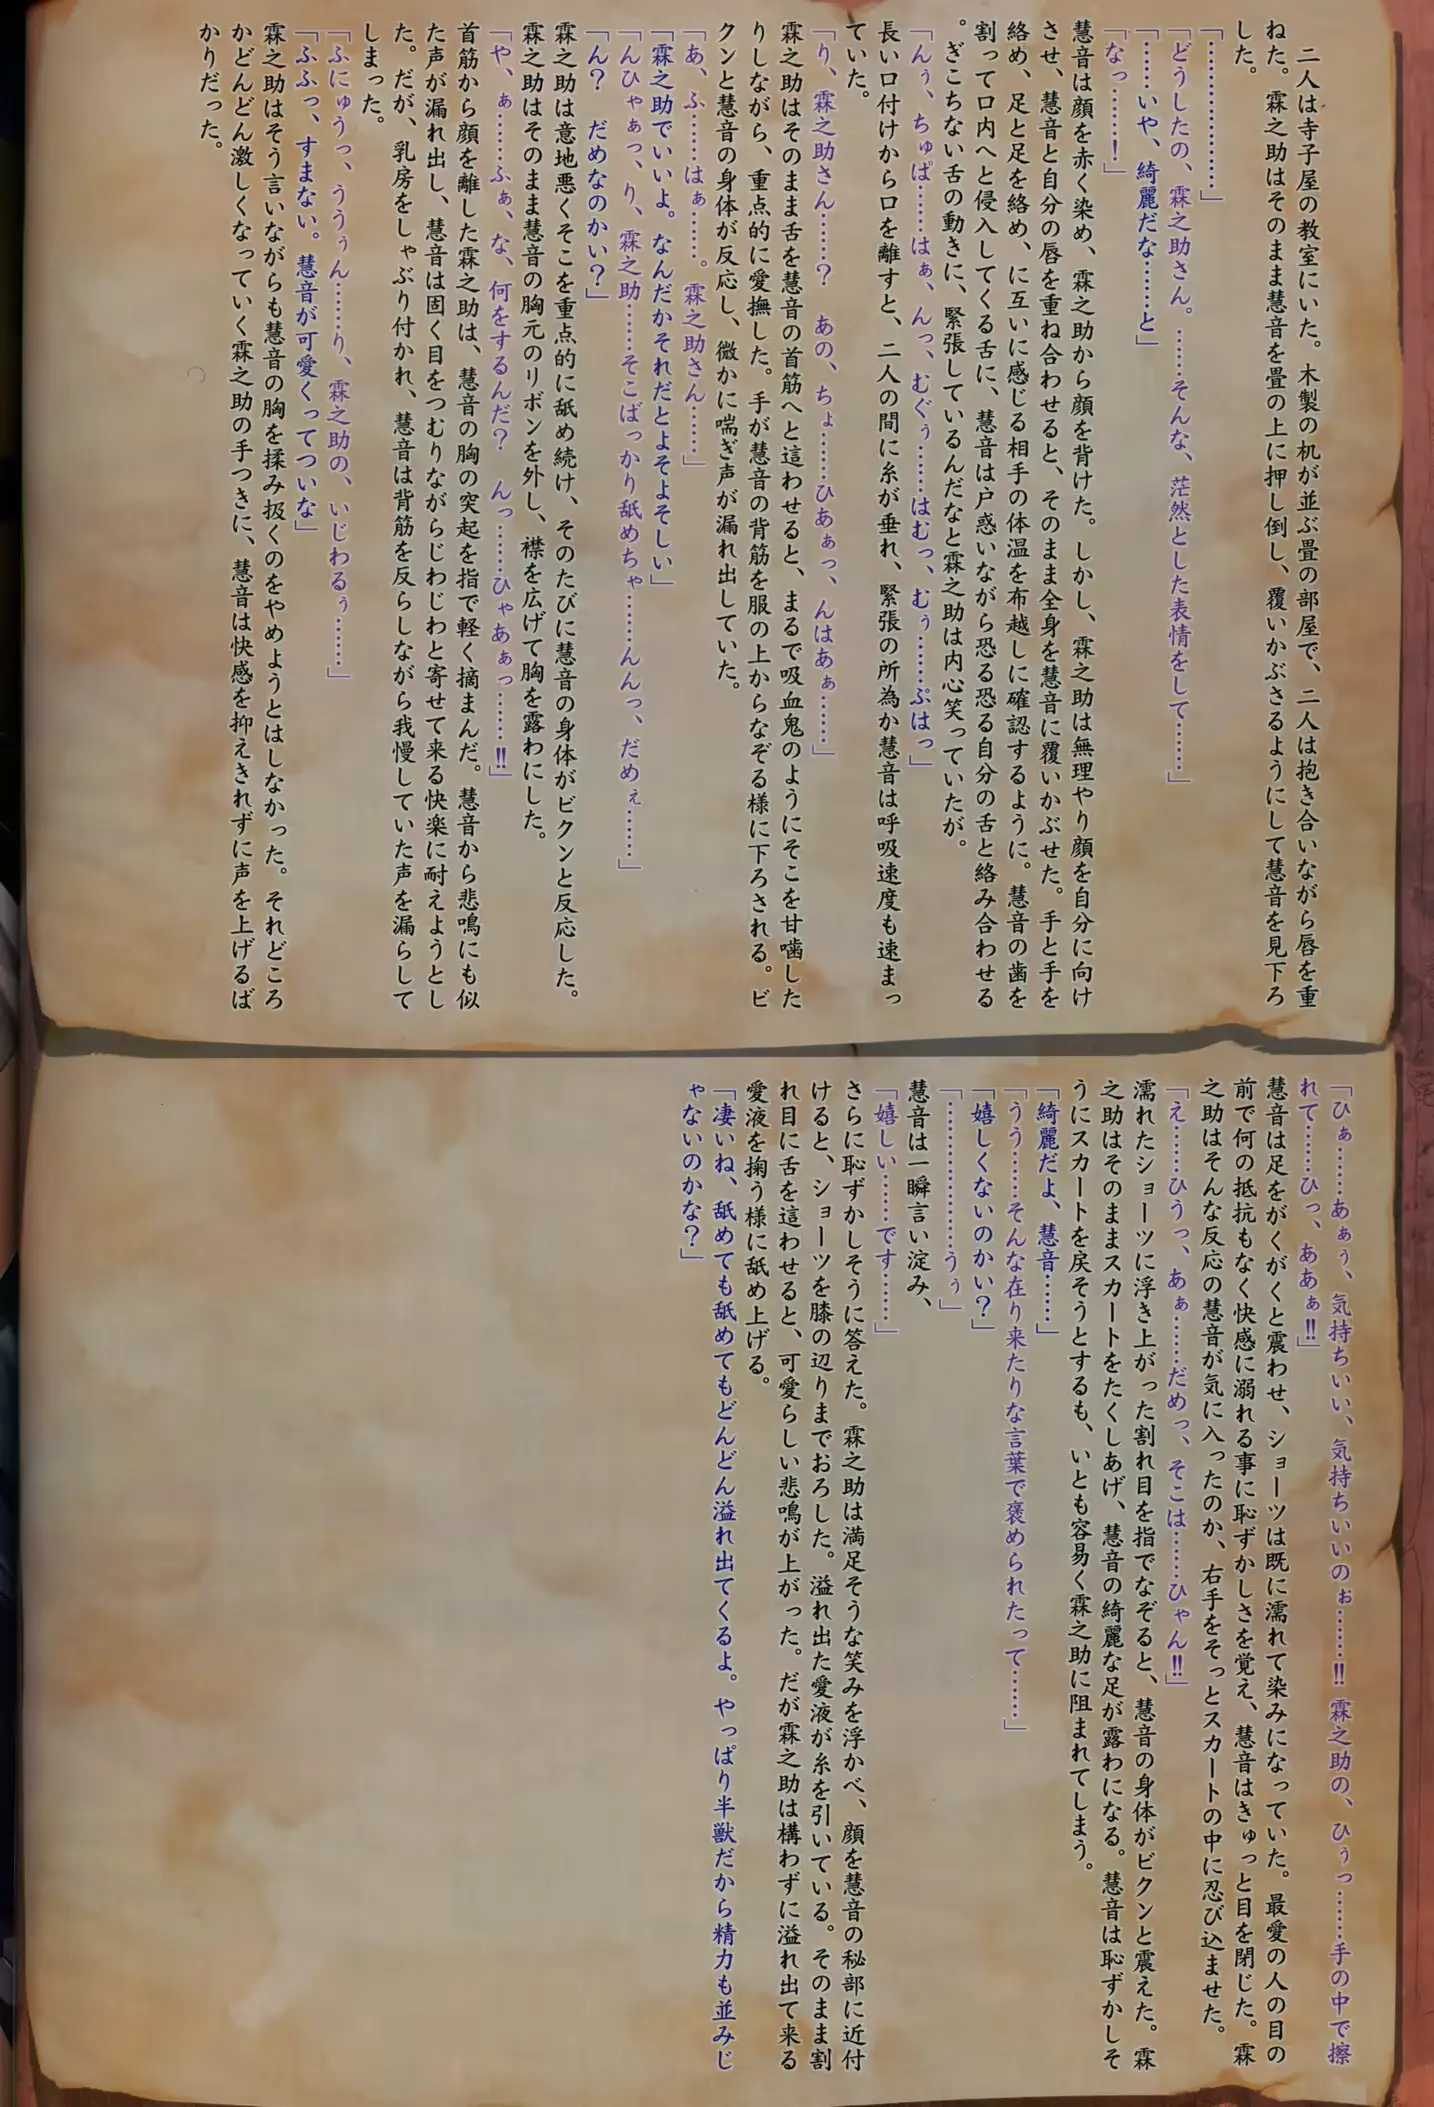 二人は寺子屋の教室にいた。木製の机が並ぶ畳の部屋で、二人は抱き合いながら唇を重
ねた。霖之助はそのまま慧音を畳の上に押し倒し、覆いかぶさるようにして慧音を見下ろ
した。
「………………」
「どうしたの、霖之助さん。……そんな、茫然とした表情をして……」
「……いや、綺麗だな……と」
「なっ……！」
慧音は顔を赤く染め、霖之助から顔を背けた。しかし、霖之助は無理やり顔を自分に向け
させ、慧音と自分の唇を重ね合わせると、そのまま全身を慧音に覆いかぶせた。手と手を
絡め、足と足を絡め、に互いに感じる相手の体温を布越しに確認するように。慧音の歯を
割って口内へと侵入してくる舌に、慧音は戸惑いながら恐る恐る自分の舌と絡み合わせる
。ぎこちない舌の動きに、緊張しているんだなと霖之助は内心笑っていたが。
「んぅ、ちゅぱ……はぁ、んっ、むぐぅ……はむっ、むぅ……ぷはっ」
長い口付けから口を離すと、二人の間に糸が垂れ、緊張の所為か慧音は呼吸速度も速まっ
ていた。
「り、霖之助さん……？　あの、ちょ……ひあぁっ、んはあぁ……」
霖之助はそのまま舌を慧音の首筋へと這わせると、まるで吸血鬼のようにそこを甘噛した
りしながら、重点的に愛撫した。手が慧音の背筋を服の上からなぞる様に下ろされる。ビ
クンと慧音の身体が反応し、微かに喘ぎ声が漏れ出していた。
「あ、ふ……はぁ……。霖之助さん……」
「霖之助でいいよ。なんだかそれだとよそよそしい」
「んひゃぁっ、り、霖之助……そこばっかり舐めちゃ……んんっ、だめぇ……」
「ん？　だめなのかい？」
霖之助は意地悪くそこを重点的に舐め続け、そのたびに慧音の身体がビクンと反応した。
霖之助はそのまま慧音の胸元のリボンを外し、襟を広げて胸を露わにした。
「や、ぁ……ふぁ、な、何をするんだ？　んっ……ひゃあぁっ……!!」
首筋から顔を離した霖之助は、慧音の胸の突起を指で軽く摘まんだ。慧音から悲鳴にも似
た声が漏れ出し、慧音は固く目をつむりながらじわじわと寄せて来る快楽に耐えようとし
た。だが、乳房をしゃぶり付かれ、慧音は背筋を反らしながら我慢していた声を漏らして
しまった。
「ふにゅうっ、ううぅん……り、霖之助の、いじわるぅ……」
「ふふっ、すまない。慧音が可愛くってついな」
霖之助はそう言いながらも慧音の胸を揉み扱くのをやめようとはしなかった。それどころ
かどんどん激しくなっていく霖之助の手つきに、慧音は快感を抑えきれずに声を上げるば
かりだった。
「ひぁ……あぁぅ、気持ちいい、気持ちいいのぉ……!! 霖之助の、ひぅっ……手の中で擦
れて……ひっ、ああぁ!!」
慧音は足をがくがくと震わせ、ショーツは既に濡れて染みになっていた。最愛の人の目の
前で何の抵抗もなく快感に溺れる事に恥ずかしさを覚え、慧音はきゅっと目を閉じた。霖
之助はそんな反応の慧音が気に入ったのか、右手をそっとスカートの中に忍び込ませた。
「え……ひうっ、あぁ……だめっ、そこは……ひゃん!!」
濡れたショーツに浮き上がった割れ目を指でなぞると、慧音の身体がビクンと震えた。霖
之助はそのままスカートをたくしあげ、慧音の綺麗な足が露わになる。慧音は恥ずかしそ
うにスカートを戻そうとするも、いとも容易く霖之助に阻まれてしまう。
「綺麗だよ、慧音……」
「うう……そんな在り来たりな言葉で褒められたって……」
「嬉しくないのかい？」
「……………うぅ」
慧音は一瞬言い淀み、
「嬉しい……です……」
さらに恥ずかしそうに答えた。霖之助は満足そうな笑みを浮かべ、顔を慧音の秘部に近付
けると、ショーツを膝の辺りまでおろした。溢れ出た愛液が糸を引いている。そのまま割
れ目に舌を這わせると、可愛らしい悲鳴が上がった。だが霖之助は構わずに溢れ出て来る
愛液を掬う様に舐め上げる。
「凄いね、舐めても舐めてもどんどん溢れ出てくるよ。やっぱり半獣だから精力も並みじ
ゃないのかな？」